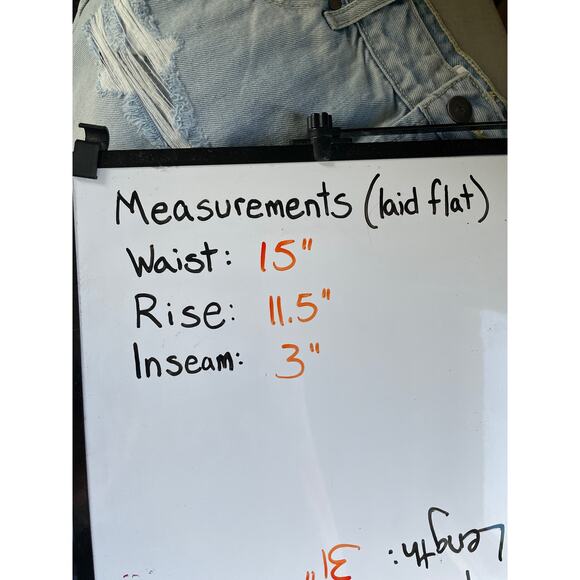 Measurements (laid flat)
Waist: 15"
Rise: 11.5"
Inseam: 3"
Length: 31"